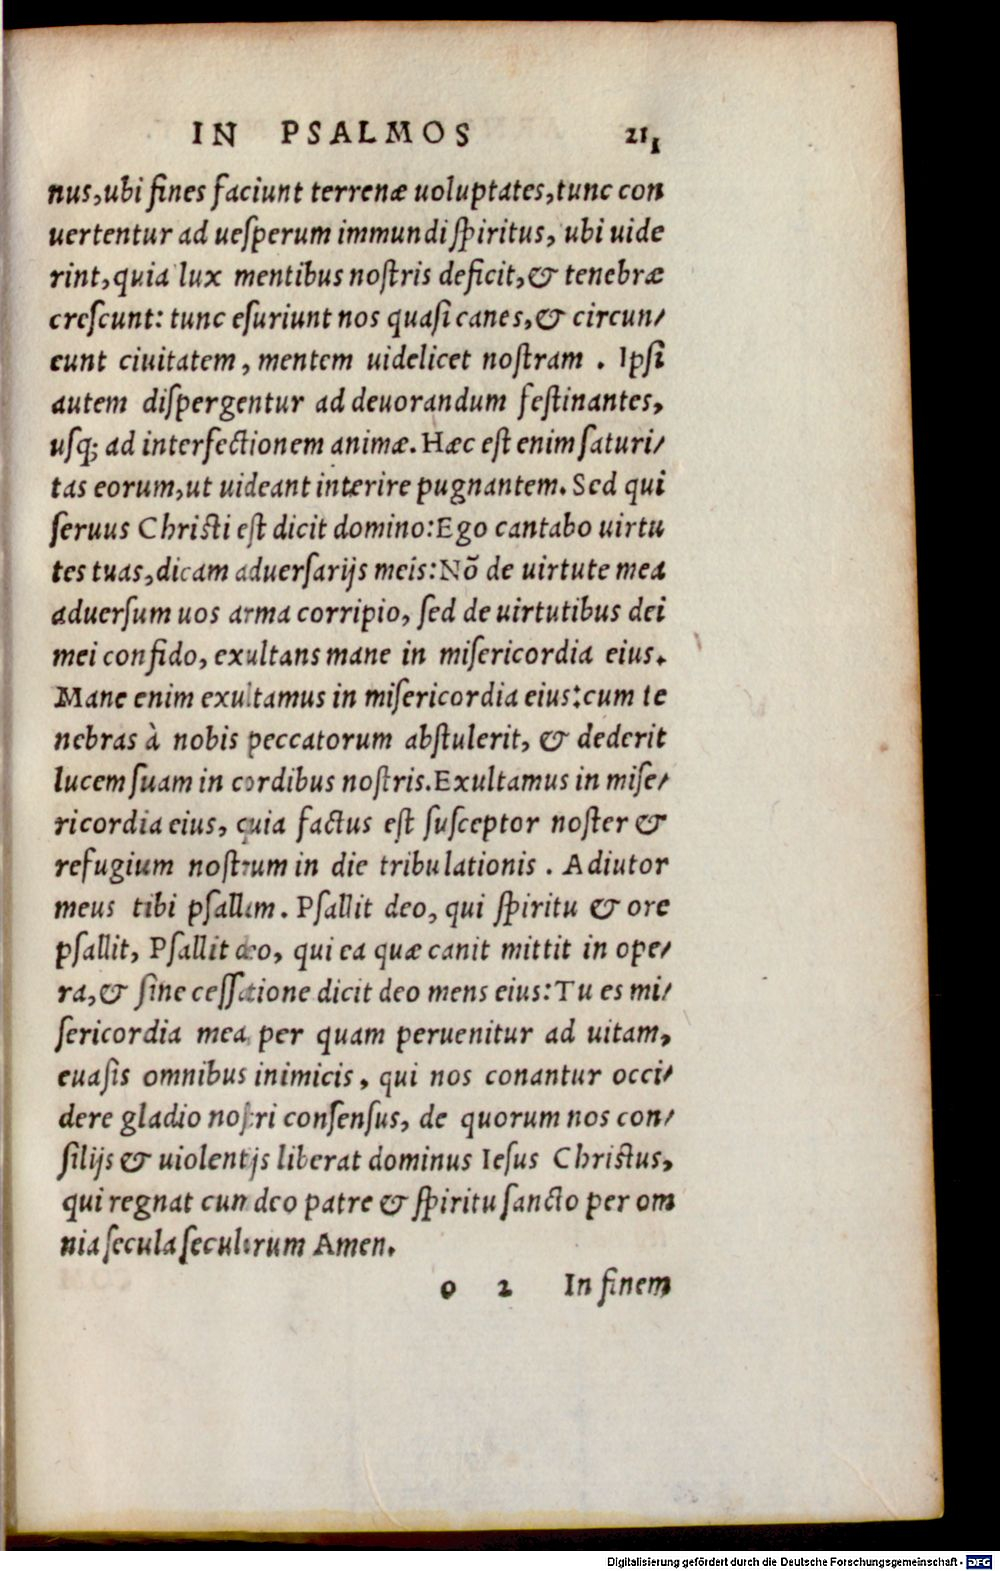 IN PSALMOS 211
nus,ubi fines faciunt terrenæ uoluptates,tunc con
uertentur ad uesperum immundi spiritus, ubi uide
rint,quia lux mentibus nostris deficit,& tenebræ
crescunt: tunc esuriunt nos quasi canes,& circun/
eunt ciuitatem, mentem uidelicet nostram . Ipsi
autem dispergentur ad deuorandum festinantes,
usq; ad interfectionem animæ. Hæc est enim saturi/
tas eorum,ut uideant interire pugnantem. Sed qui
seruus Christi est dicit domino: Ego cantabo uirtu
tes tuas,dicam aduersarijs meis: Nõ de uirtute mea
aduersum uos arma corripio, sed de uirtutibus dei
mei confido, exultans mane in misericordia eius.
Mane enim exultamus in misericordia eius:cum te
nebras à nobis peccatorum abstulerit, & dederit
lucem suam in cordibus nostris. Exultamus in mise/
ricordia eius, quia factus est susceptor noster &
refugium nostrum in die tribulationis . Adiutor
meus tibi psallam. Psallit deo, qui spiritu & ore
psallit, Psallit deo, qui ea quæ canit mittit in ope/
ra,& sine cessatione dicit deo mens eius: Tu es mi/
sericordia mea, per quam peruenitur ad uitam,
euasis omnibus inimicis, qui nos conantur occi/
dere gladio nostri consensus, de quorum nos con/
silijs & uiolentijs liberat dominus Iesus Christus,
qui regnat cum deo patre & spiritu sancto per om
nia secula seculorum Amen.
o 2 In finem
Digitalisierung gefördert durch die Deutsche Forschungsgemeinschaft - DFG